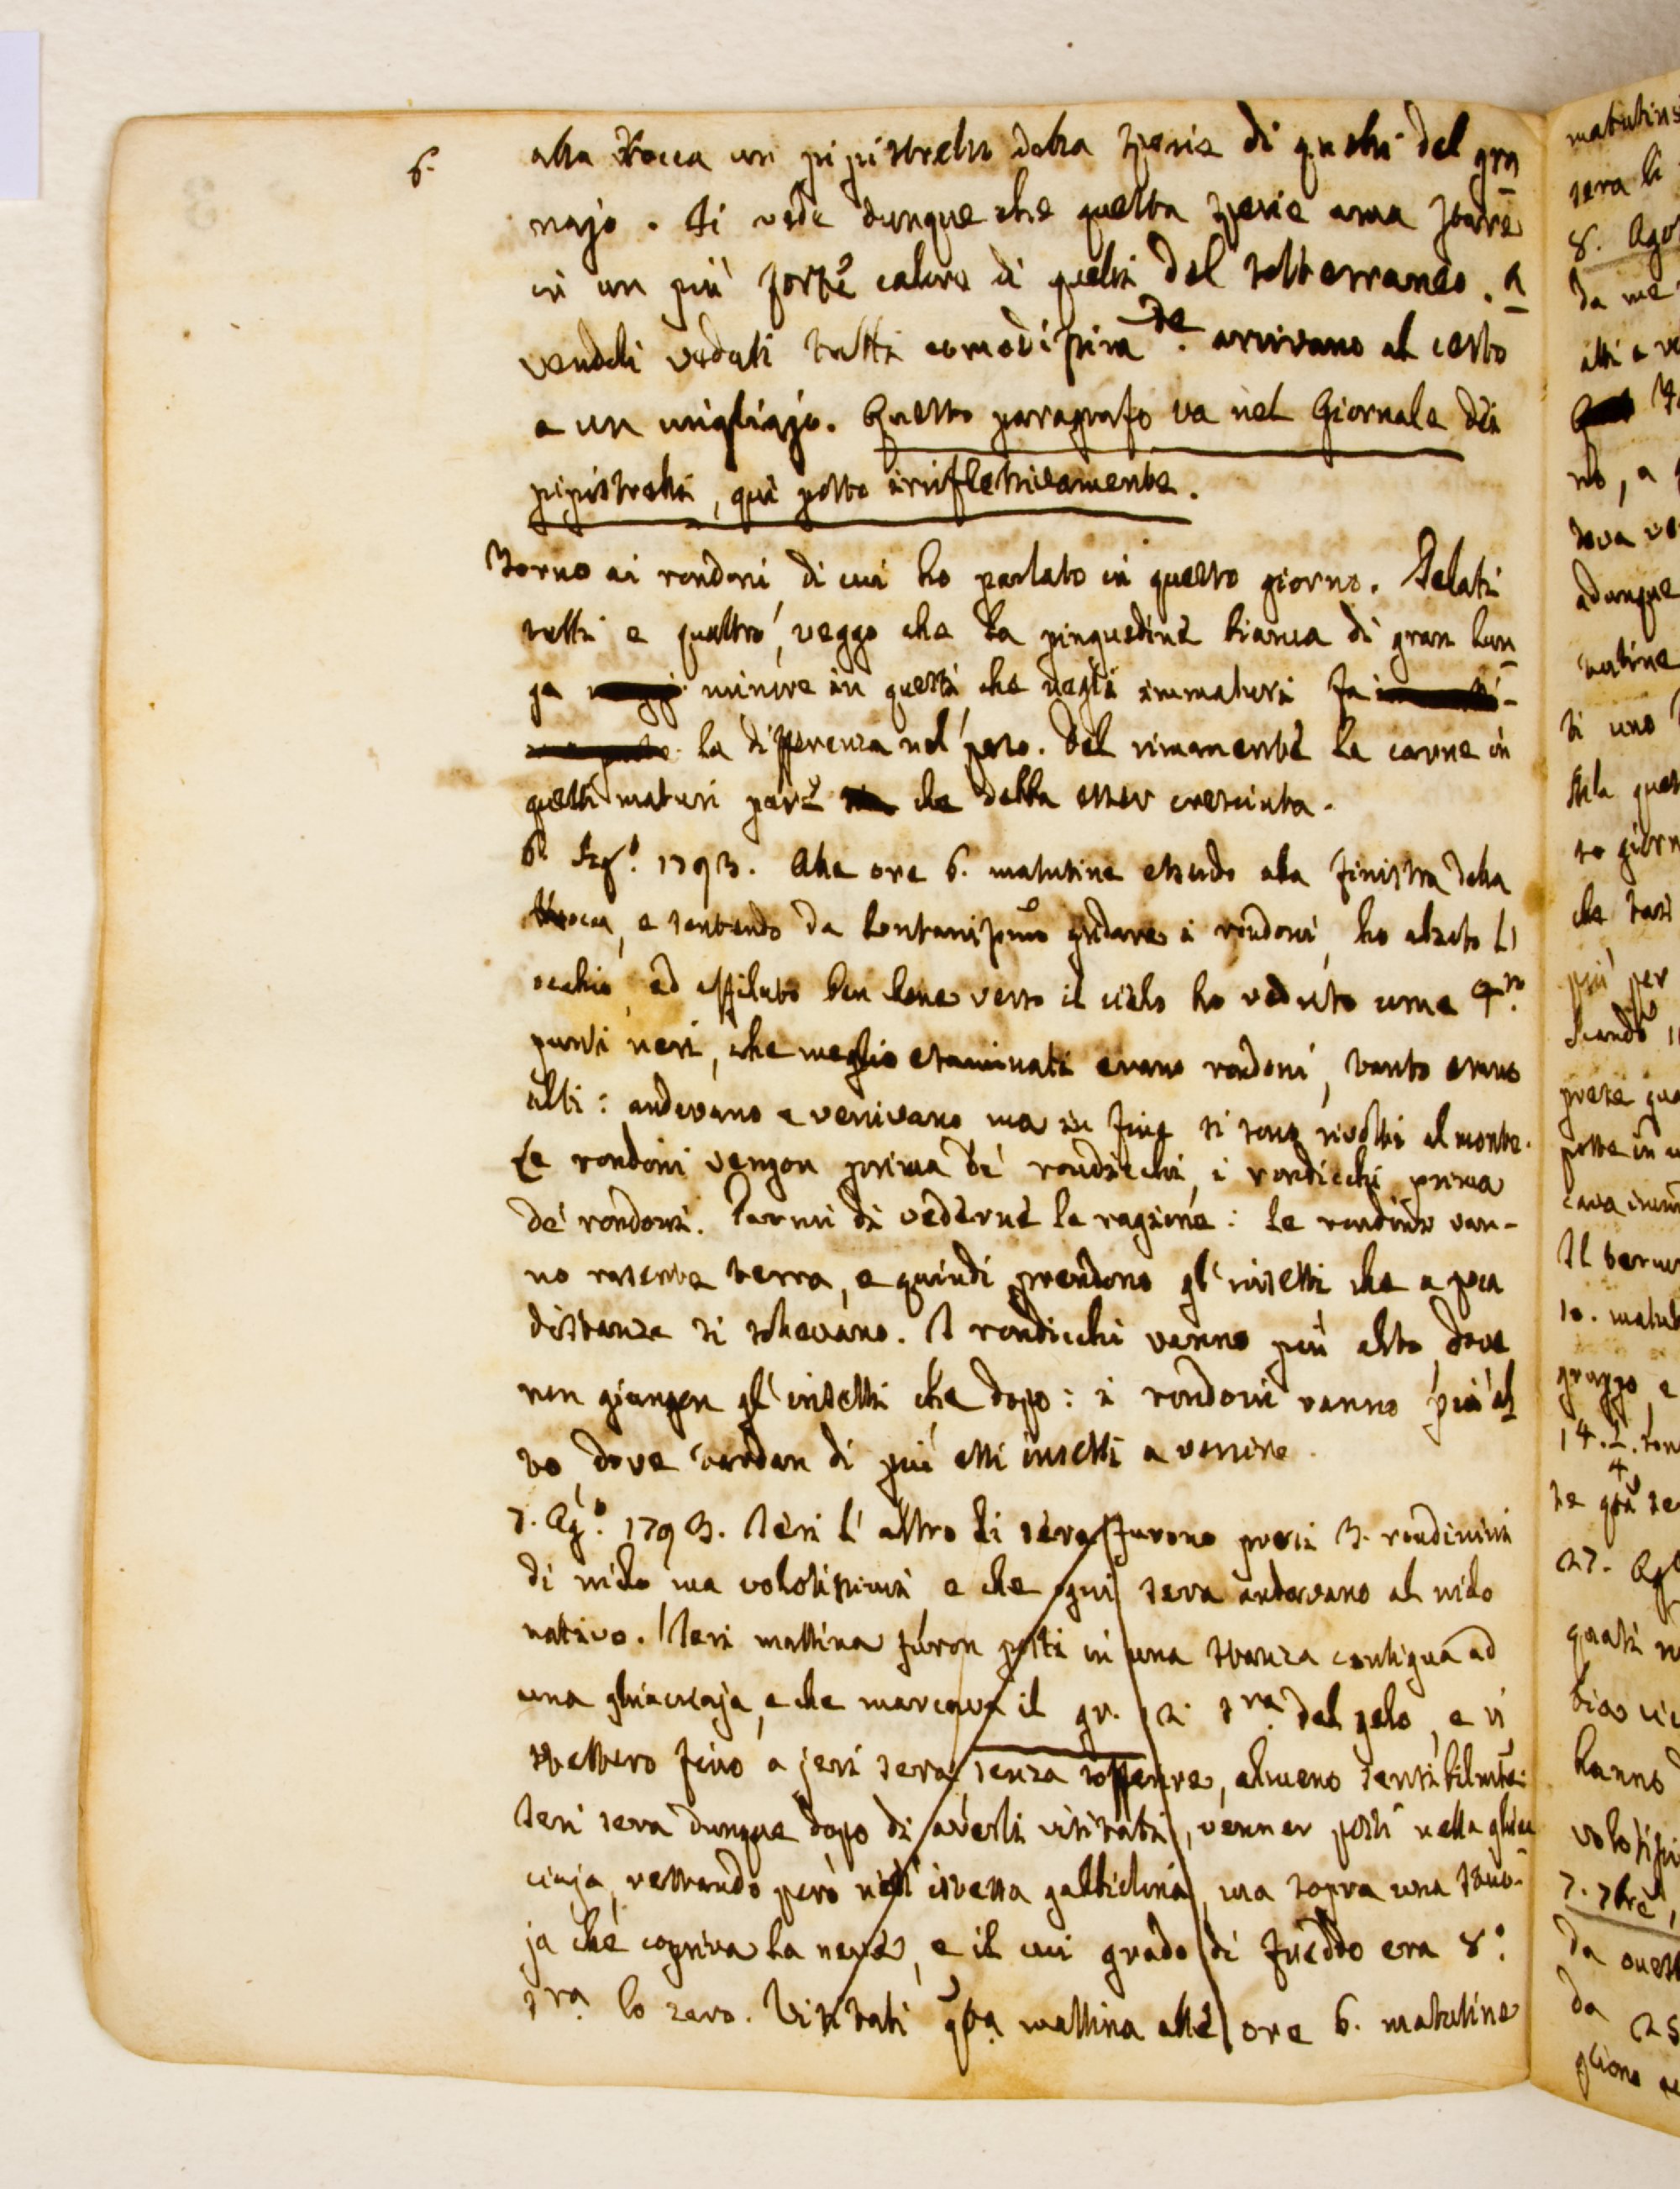 6.
alla Rocca un pipistrello della spezie di quelli del gra
najo. Si vede dunque che questa spezie ama stare
in un più forte calore di quelli del sotterraneo. A
vendoli veduti tutti comodissimam.te arrivano al certo
a un migliajo. Questo paragrafo va nel Giornale dei
pipistrelli, quì posto irriflessivamente.
Torno ai rondoni, di cui ho parlato in questo giorno. Pelati
tutti e quattro, veggo che la pinguedine bianca di gran lun
ga minore in questi, che negli immaturi fa
la differenza nel peso. Del rimanente la carne in
questi maturi pare che debba esser cresciuta.
6. Ag.o 1793. Alle ore 6. matutine essendo alla finistra della
Rocca, e sentendo da lontanissimo gridare i rondoni, ho alzato l'
occhio, ed affilato ben bene verso il cielo ho veduto come
punti neri, che meglio esaminati erano rondoni, tanto erano
alti: andavano e venivano ma in fine si sono rivolti al monte.
Le rondini vengon prima de' rondicchi, i rondicchi prima
de' rondoni. Parmi di vederne la ragione: le rondini van-
no rasente terra, e quindi prendono gl'insetti che a poca
distanza si sollevano. I rondicchi vanno più alto, dove
non giungon gl'insetti che dopo: i rondoni vanno più al
to, dove tardan di più essi insetti a venire.
7. Ag.o 1793. Ieri l'altro di sera furono presi 3. rondinini
di nido ma volotissimi e che ogni sera andavano al nido
nativo. Ieri mattina furon posti in una stanza contigua ad
una ghiacciaja, e che marcava il gr. 12. s.ra del gelo, e vi
stettero fino a jeri sera senza soffrire, almeno sensibilmte.
Ieri sera dunque dopo di averli visitati, venner posti nella ghiac
ciaja, restando però nell'istessa gabbiolina, ma sopra una stuo-
ja che copriva la neve, e il cui grado di freddo era 8.°
s.ra lo zero. Visitati qta mattina alle ore 6. matutine
matutins
sera li
8. Ago
da me
altri a ve
no, a
adunque
matine
di uno
to giorn
che tasi
più per
prese qua
10. matut
gruppo, e
27. Ag
quasi
hanno
7. 7bre,
da quest
da 25